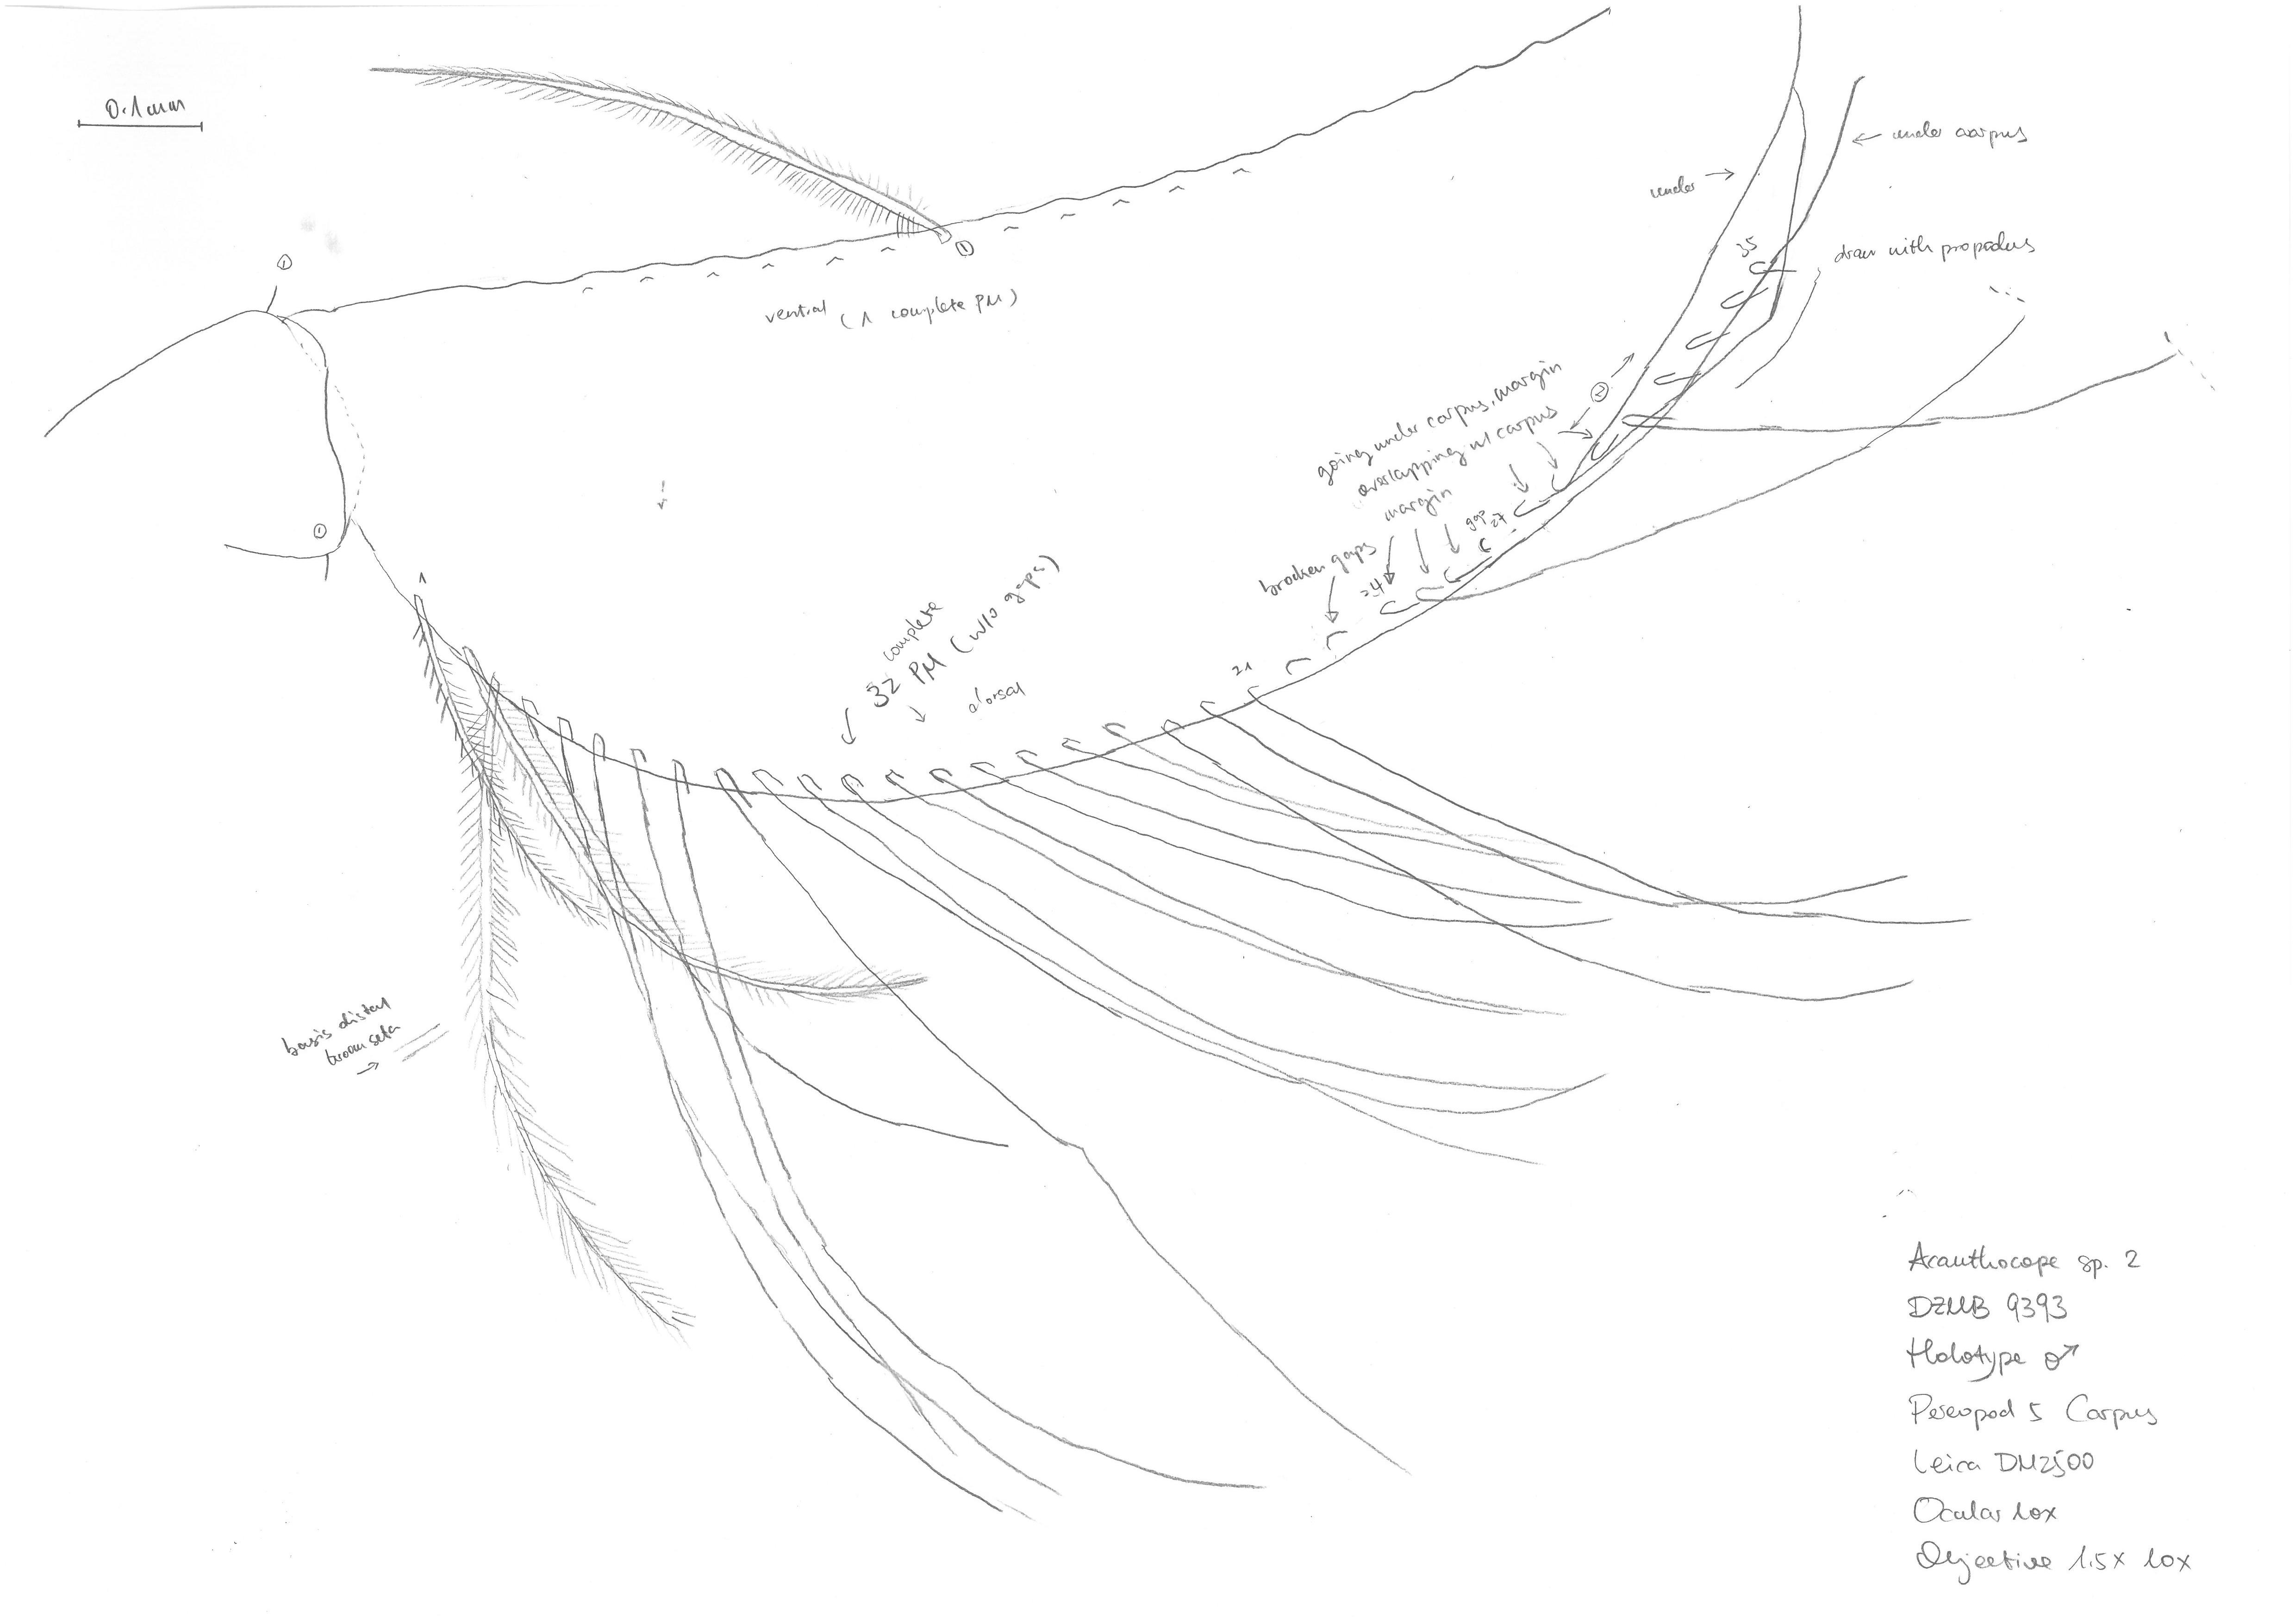 0.1mm
①
①
ventral (1 complete PM)
①
under →
← under carpus
35
draw with propodus
②
going under carpus, margin
overlapping w/ carpus
margin
gap
27
brocken gaps
24
21
1
32 complete
PM (w/o gaps)
dorsal
basis distal
broom seta
→
Acanthocope sp. 2
DZMB 9393
Holotype ♂
Pereopod 5 Carpus
Leica DM2500
Ocular 10x
Objective 1.5x 10x